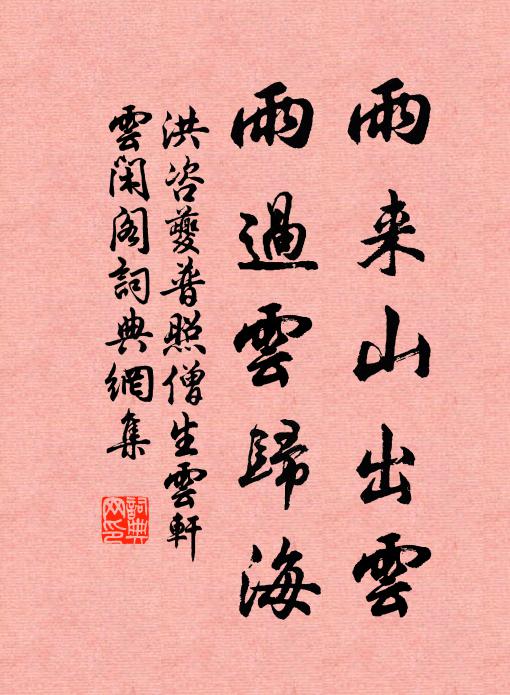 雨来山出雲
雨過雲歸海
洪咨夔普照僧生雲軒
雲閑阁詞典網集
詞典网印